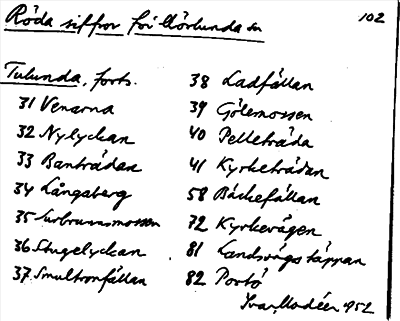 Röda siffror för Hörlunda sn
102
Tulunda, forts.
31 Venarna
32 Nylyckan
33 Banträdan
34 Långsberg
35 Surbrunnsmossen
36 Stugelyckan
37 Smultronfällan
38 Ladfällan
39 Gölemossen
40 Pelleträda
41 Kyrketrädan
58 Bäckefällan
72 Kyrkevägen
81 Landsvägstäppan
82 Portö
Ivar Modéer 1952